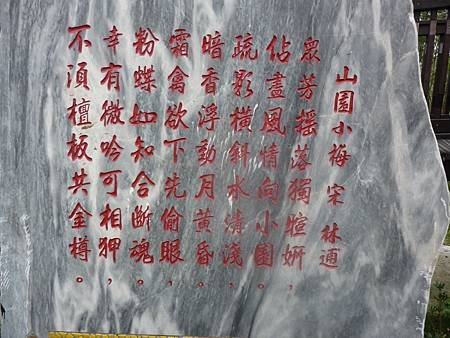 山園小梅 宋 林逋
眾芳搖落獨暄妍，
佔盡風情向小園。
疏影橫斜水清淺，
暗香浮動月黃昏。
霜禽欲下先偷眼，
粉蝶如知合斷魂。
幸有微吟可相狎，
不須檀板共金樽。